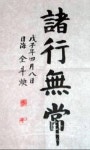 諸行無常
戊子年四月八日
日海 全斗煥